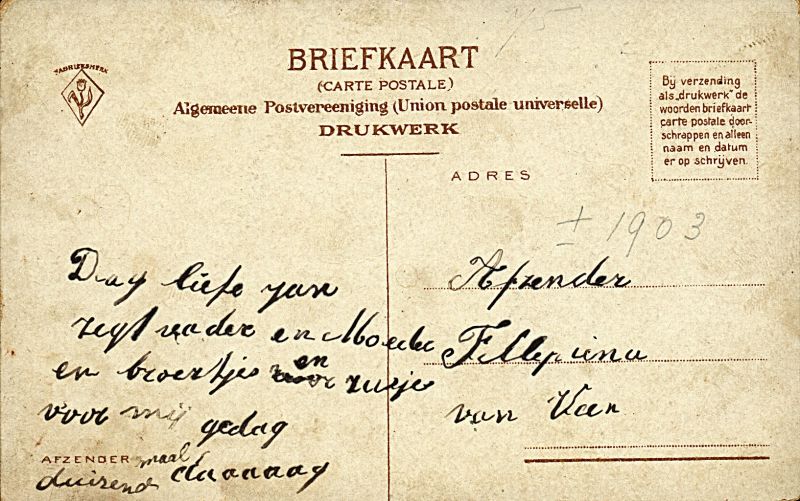 FABRIEKSMERK
BRIEFKAART
(CARTE POSTALE)
Algemeene Postvereeniging (Union postale universelle)
DRUKWERK
Bij verzending
als „drukwerk" de
woorden briefkaart
carte postale door-
schrappen en alleen
naam en datum
er op schrijven.
ADRES
± 1903
Dag liefe yan
zegt vader en Moeder
en broertjes en zusje
voor mij gedag
AFZENDER
duizend maal daaaaag
Afzender
van